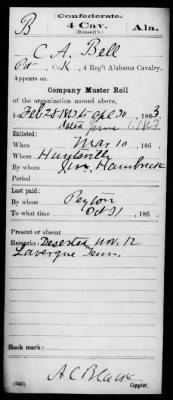 Confederate.
B
4 Cav.
Ala.
(Russell's)
C A Bell
Pvt, Co. K, 4 Reg't Alabama Cavalry.
Appears on
Company Muster Roll
of the organization named above,
for Feb 28 1863 to Apl 30, 1863
dated June 1863
Enlisted:
When Mar 10, 186 .
Where Huntsville
By whom Jno Hambrick
Period
Last paid:
By whom Peyton
To what time Oct 31, 186 .
Present or absent
Remarks: Deserted Nov. 12
Lavergne Tenn.
Book mark:
(642) A C Black
Copyist.